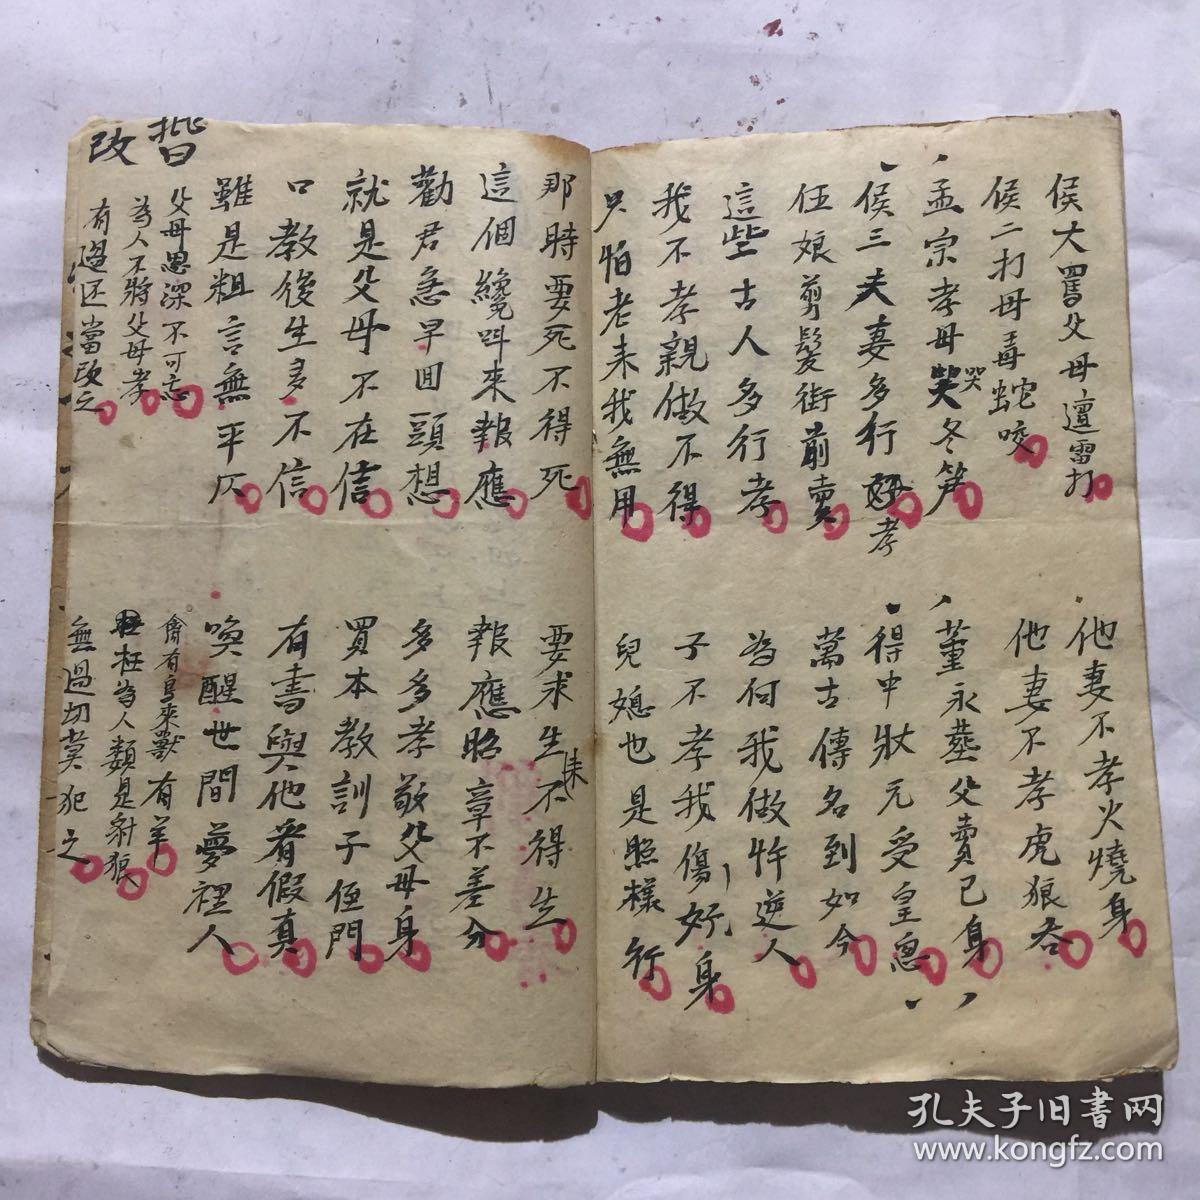 侯大罵父母遭雷打
他妻不孝火燒身
侯二打母毒蛇咬
他妻不孝虎狼吞
孟宗孝母哭冬笋
哭
董永葬父賣己身
侯三夫妻多行孝
得中狀元受皇恩
伍娘剪髮街前賣
萬古傳名到如今
這些古人多行孝
為何我做忤逆人
我不孝親做不得
子不孝我傷好身
只怕老來我無用
兒媳也是照樣行
那時要死不得死
要求生不得生
這個纔叫來報應
報應昭章不差分
勸君急早回頭想
多多孝敬父母身
就是父母不在信
買本教訓子侄門
口教後生多不信
有書與他看假真
雖是粗言無平仄
喚醒世間夢裡人
父母恩深不可忘
禽有烏來獸有羊
為人不將父母孝
枉為人類是豺狼
有過還當改之
無過切莫犯之
改
孔夫子旧书网
www.kongfz.com